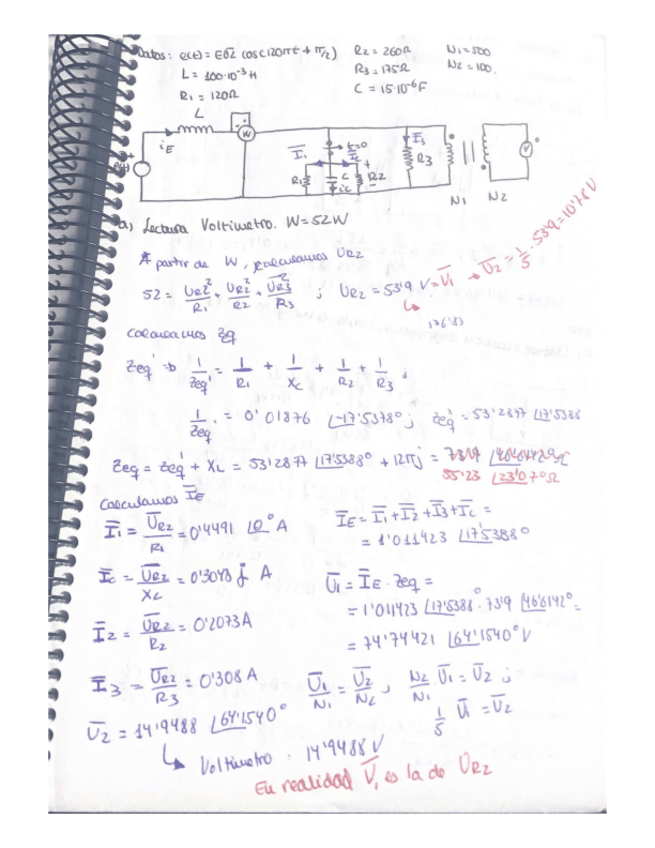 Datos: e(t) = E0√2 cos(120πt + π/2) R2 = 260Ω N1 = 500
L = 100·10⁻³ H R3 = 175Ω N2 = 100.
R1 = 120Ω C = 15·10⁻⁶ F
L
W
iE I1 t=0 Ic I3
e(t) R1 C R2 R3 V
ic
N1 N2
a) Lectura Voltimetro. W = 52W
A partir de W, calculamos UR2
52 = UR2²/R1 + UR2²/R2 + UR3²/R3 ; UR2 = 53'9 V = V1 → U2 = 1/5 · 53'9 = 10'78 V
176'83
Calculamos Zeq
Zeq' ⇒ 1/Zeq' = 1/R1 + 1/XC + 1/R2 + 1/R3 ;
1/Zeq' = 0'01876 ∠-17'5378° ; Zeq' = 53'2877 ∠17'5388
Zeq = Zeq' + XL = 53'2877 ∠17'5388° + 12πj = 73'9 ∠46'6142°Ω
55'23 ∠23'07°Ω
Calculamos IE
I1 = UR2/R1 = 0'4491 ∠0° A IE = I1 + I2 + I3 + Ic =
= 1'011423 ∠17'5388°
Ic = UR2/XC = 0'3048 j A U1 = IE · Zeq =
= 1'011423 ∠17'5388° · 73'9 ∠46'6142° =
I2 = UR2/R2 = 0'2073A = 74'74421 ∠64'1540° V
I3 = UR2/R3 = 0'308 A U1/N1 = U2/N2 ; N2/N1 U1 = U2 ;
U2 = 14'9488 ∠64'1540° 1/5 U1 = U2
↳ Voltimetro · 14'9488 V
En realidad V1 es la de UR2